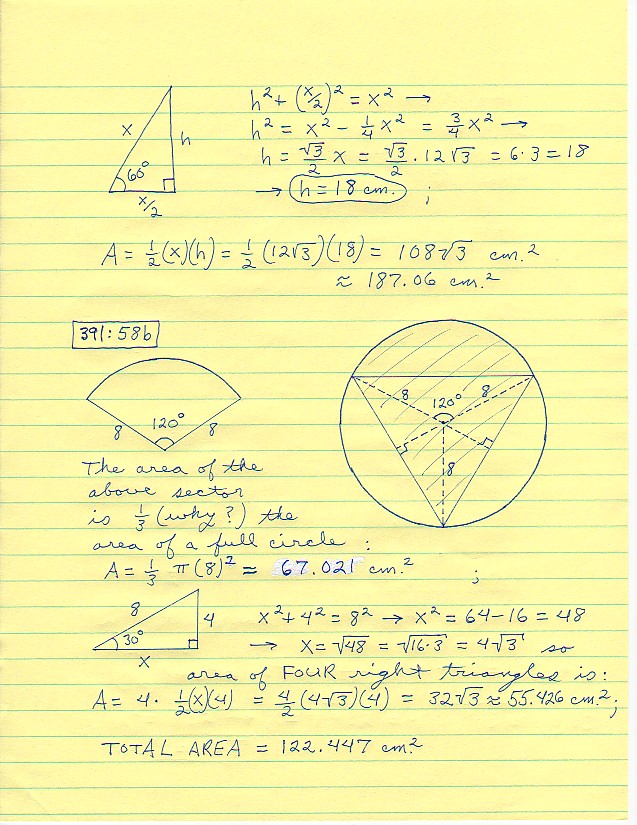 h² + (x/2)² = x² →
x
h
60°
x/2
h² = x² - 1/4 x² = 3/4 x² →
h = √3/2 x = √3/2 · 12√3 = 6·3 = 18
→ h = 18 cm. ;
A = 1/2 (x)(h) = 1/2 (12√3)(18) = 108√3 cm.²
≈ 187.06 cm.²
391:58b
120°
8
8
8
8
120°
8
The area of the
above sector
is 1/3 (why?) the
area of a full circle :
A = 1/3 π(8)² ≈ 67.021 cm.² ;
8
4
30°
x
x² + 4² = 8² → x² = 64 - 16 = 48
→ x = √48 = √16·3 = 4√3 so
area of FOUR right triangles is:
A = 4 · 1/2 (x)(4) = 4/2 (4√3)(4) = 32√3 ≈ 55.426 cm.² ;
TOTAL AREA = 122.447 cm.²